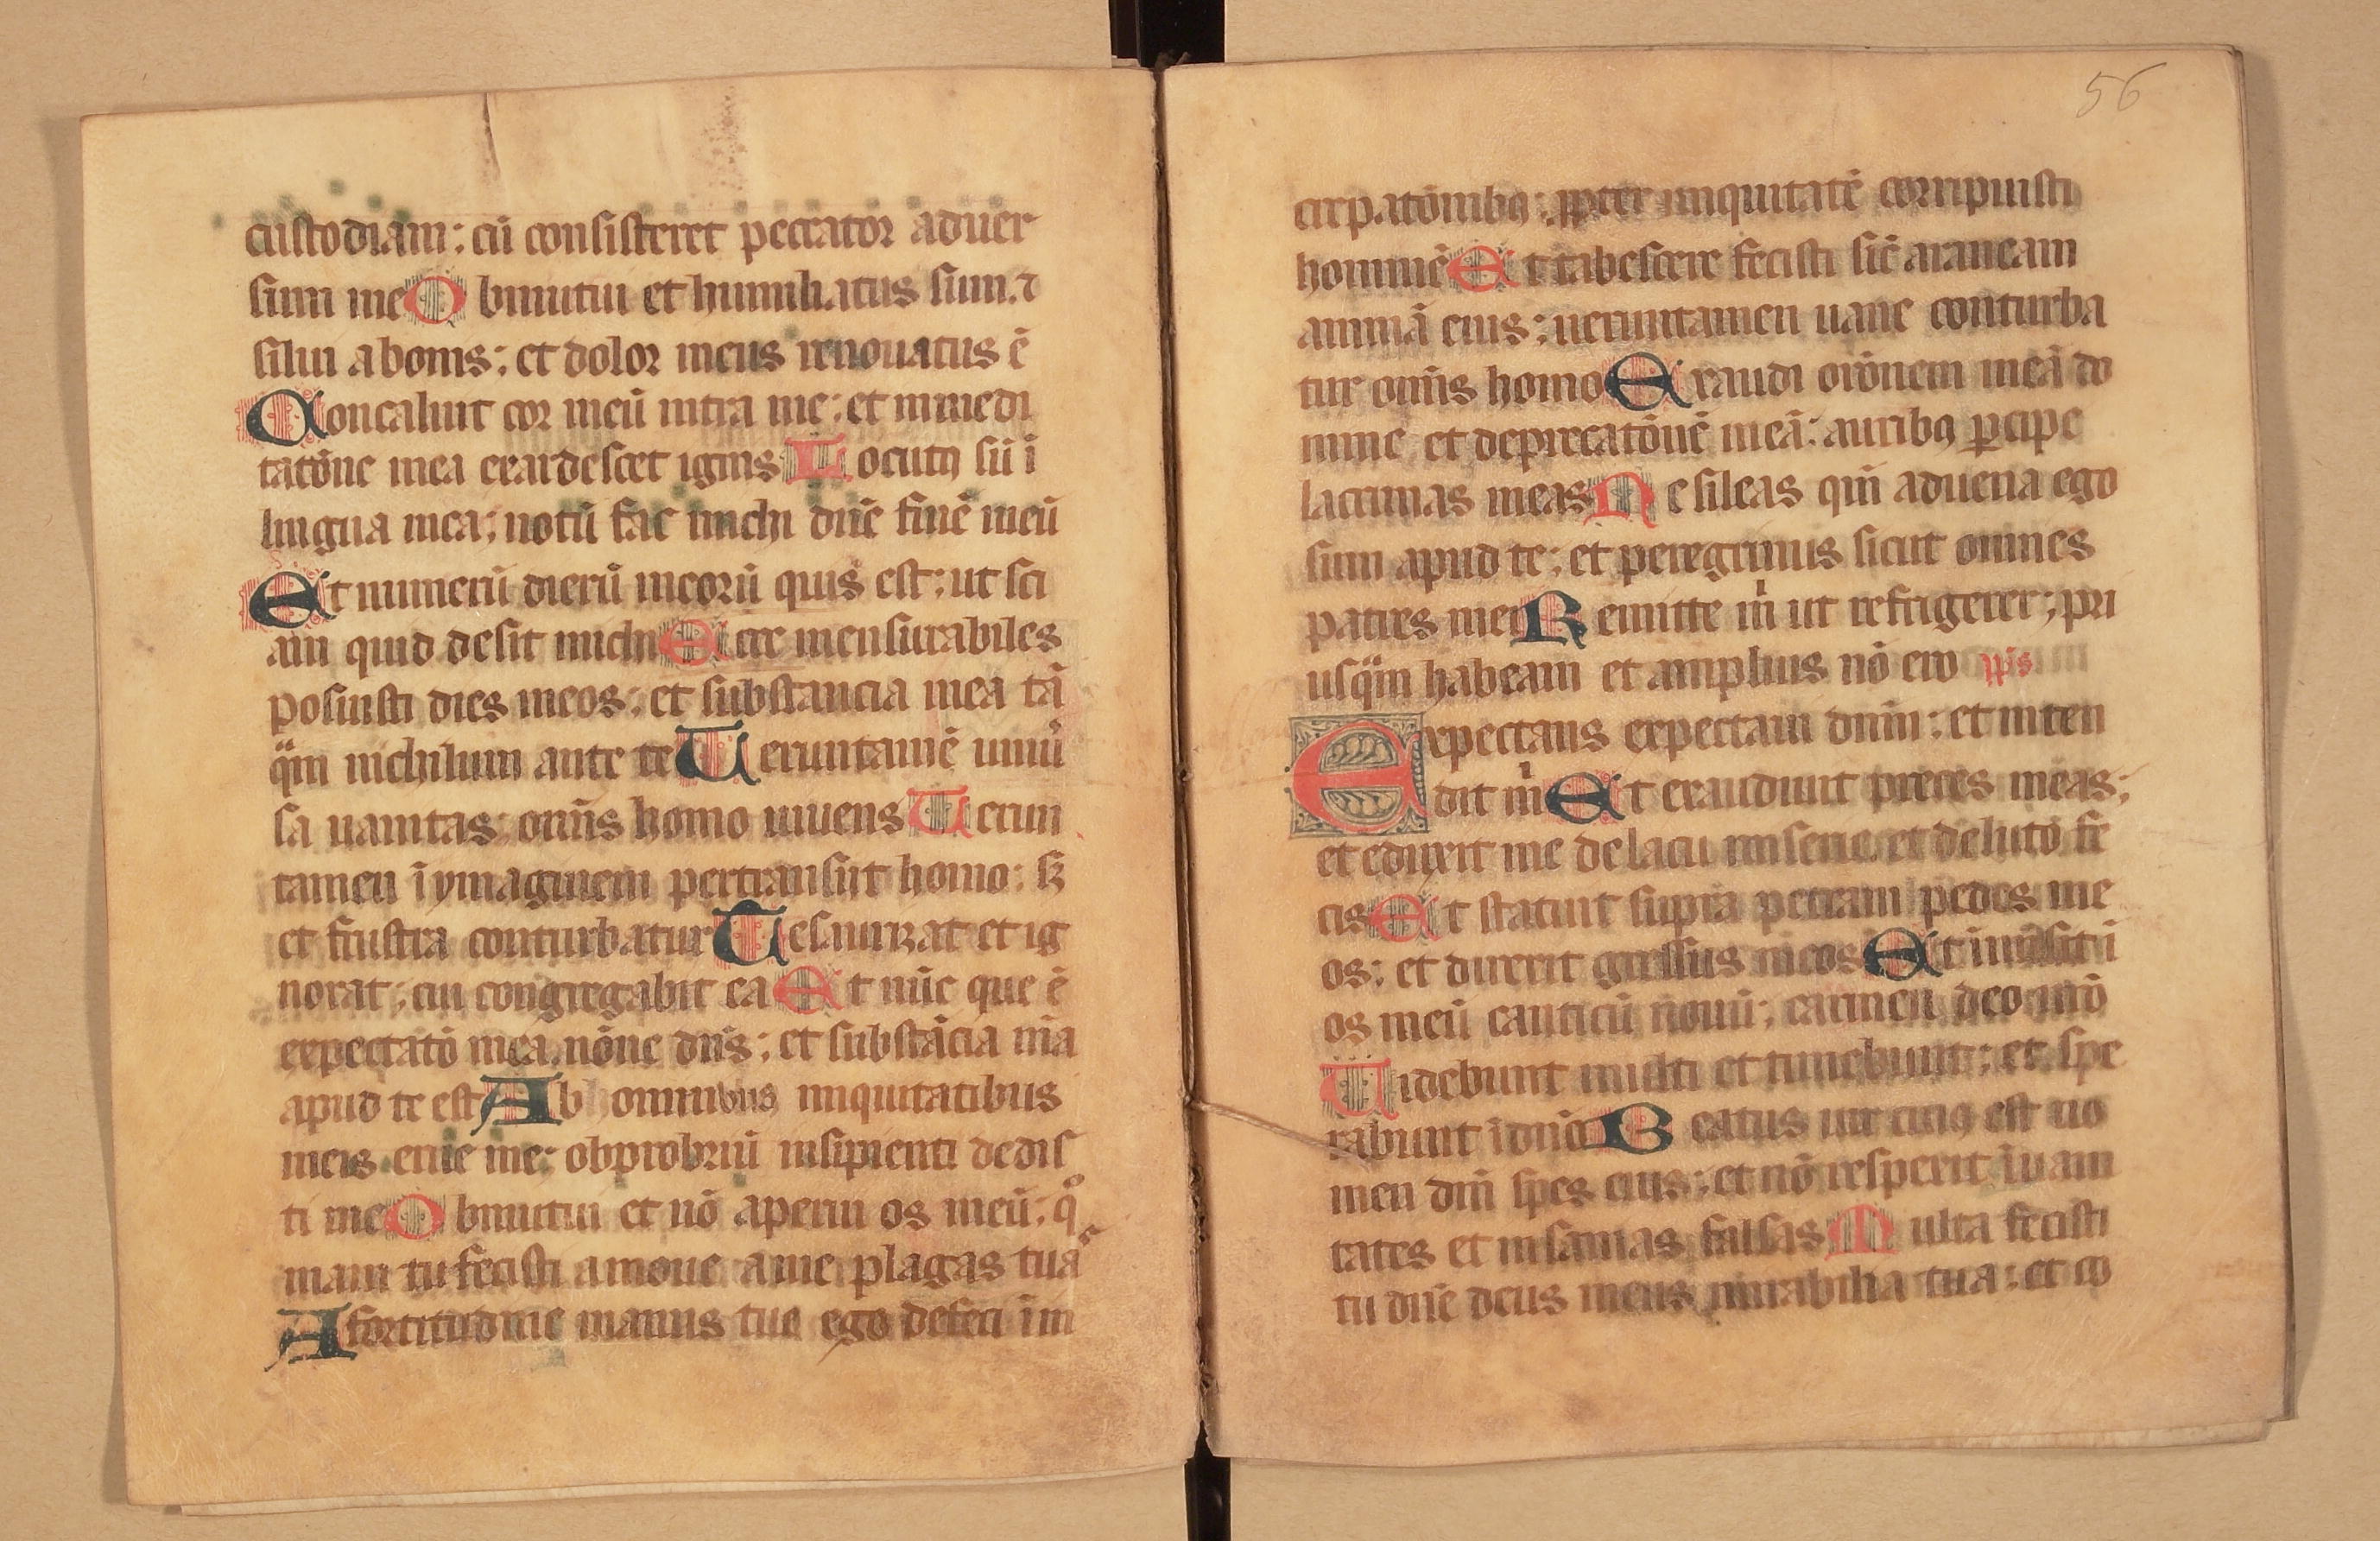 custodiam: cū consisteret peccator aduer
sum me Obmutui et humiliatus sum. ⁊
silui a bonis: et dolor meus renouatus ē
Concaluit cor meū intra me: et in medi
tatōne mea exardescet ignis Locutꝯ sū ī
lingua mea: notū fac michi dn̄e finē meū
Et numerū dierū meorū quis est: ut sci
am quid desit michi Ecce mensurabiles
posuisti dies meos: et substancia mea tā
qͣm nichilum ante te Ueruntamē uniu͛
sa uanitas: omīs homo uiuens Uerun
tamen ī ymaginem pertransiit homo: sꝫ
et frustra conturbatur Tesaurizat et ig
norat: cui congregabit ea Et nūc que ē
expectatō mea. nōne dn̄s: et substācia m̄a
apud te est Ab homnibus iniquitatibus
meis erue me: obprobriū insipienti dedis
ti me Obmutui et nō aperui os meū: qͦ
niam tu fecisti amoue a me plagas tuas
A fortitudine manus tue ego defeci ī in
56
crepatōnibꝯ: ꝓpter iniquitatē corripuisti
hominē Et tabescere fecisti sic̄ araneam
animā eius: ueruntamen uane conturba
tur omīs homo Exaudi orōnem meā do
mine et deprecatōnē meā: auribꝯ ꝑcipe
lacrimas meas Ne sileas qm̄ aduena ego
sum apud te: et peregrinus sicut omnes
patres mei Remitte mͥ ut refrigerer: pri
usqͣm habeam et amplius nō ero ps̄
Expectans expectaui dnm̄: et inten
dit mͥ Et exaudiuit preces meas:
et eduxit me de lacu miserie. et de luto fe
cis Et statuit supra petram pedes me
os: et direxit gressus meos Et inmisit ī
os meū canticū nouū: carmen deo nr̄o
Uidebunt multi et timebunt: et spe
rabunt ī dn̄o Beatus uir cuiꝯ est no
men dn̄i spes eius: et nō respexit ī uani
tates et insanias falsas Multa fecisti
tu dn̄e deus meus mirabilia tua: et co